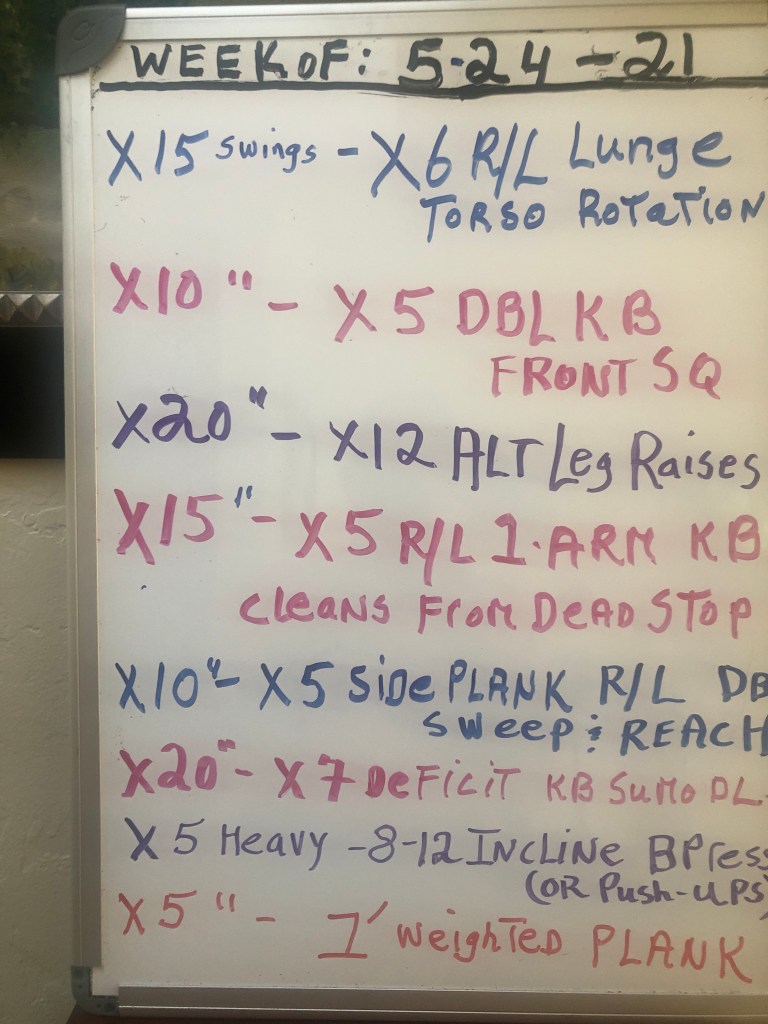 WEEK OF: 5-24-21
X15 swings - X6 R/L Lunge
TORSO ROTATION
X10 " - X5 DBL KB
FRONT SQ
X20 " - X12 ALT Leg Raises
X15 " - X5 R/L 1-ARM KB
Cleans From Dead STOP
X10 " - X5 Side PLANK R/L DB
Sweep & REACH
X20 " - X7 DeFicit KB Sumo DL
X5 Heavy - 8-12 Incline BPress
(OR Push-UPS)
X5 " - 1' Weighted PLANK